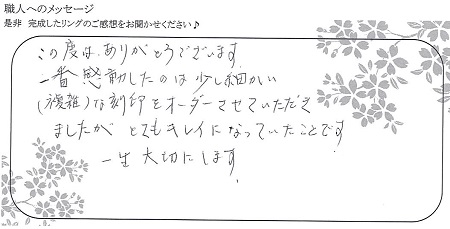 職人へのメッセージ
是非 完成したリングのご感想をお聞かせください♪
この度は、ありがとうございます。
一番感動したのは少し細かい
(複雑)な刻印をオーダーさせていただき
ましたが とてもキレイになっていたことです
一生大切にします。